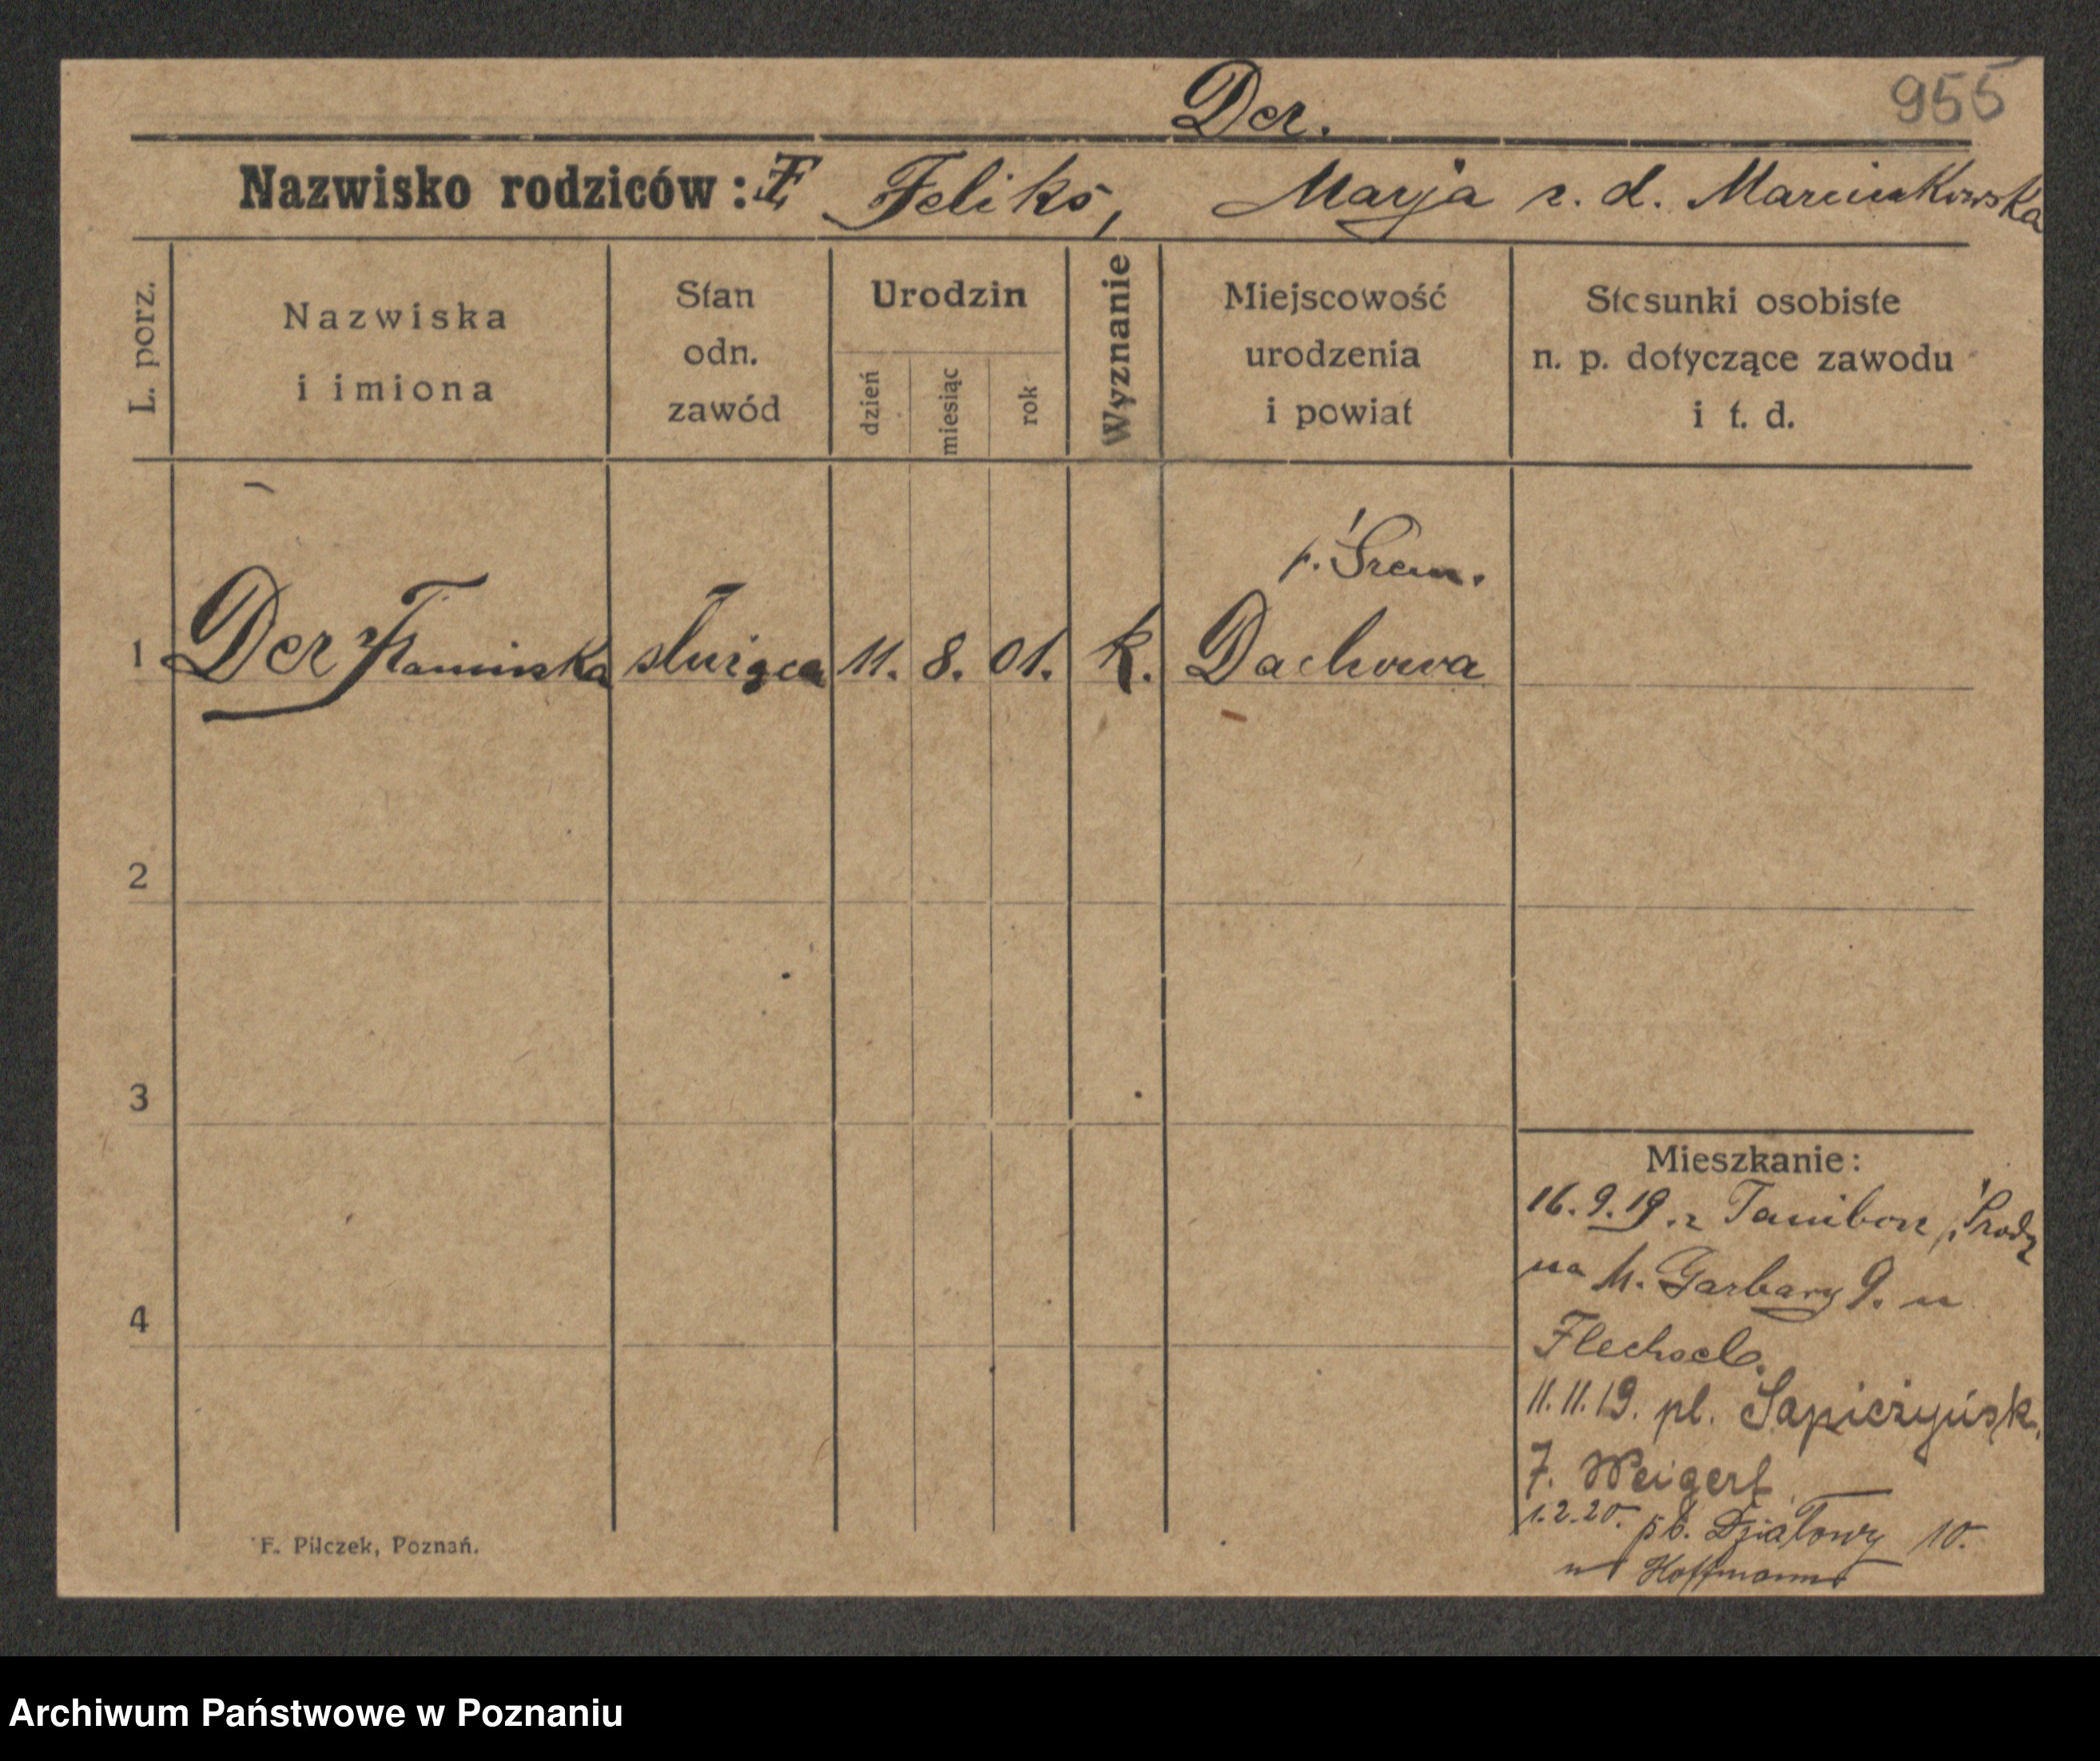 955
Der.
Nazwisko rodziców: F Feliks, Marja z. d. Marcinkowska
L. porz.
Nazwiska i imiona
Stan odn. zawód
Urodzin
dzień
miesiąc
rok
Wyznanie
Miejscowość urodzenia i powiat
Stosunki osobiste n. p. dotyczące zawodu i t. d.
p. Śrem.
1 Der służąca 11. 8. 01. k. Dachowa
2
3
4
Mieszkanie:
16.9.19. z
na M. Garbary 9. u
Flechsel.
11.11.19. pl. Sapieżyńsk.
7. Weigert
1.2.20. pl. Działowy 10.
u Hoffmann
F. Pilczek, Poznań.
Archiwum Państwowe w Poznaniu